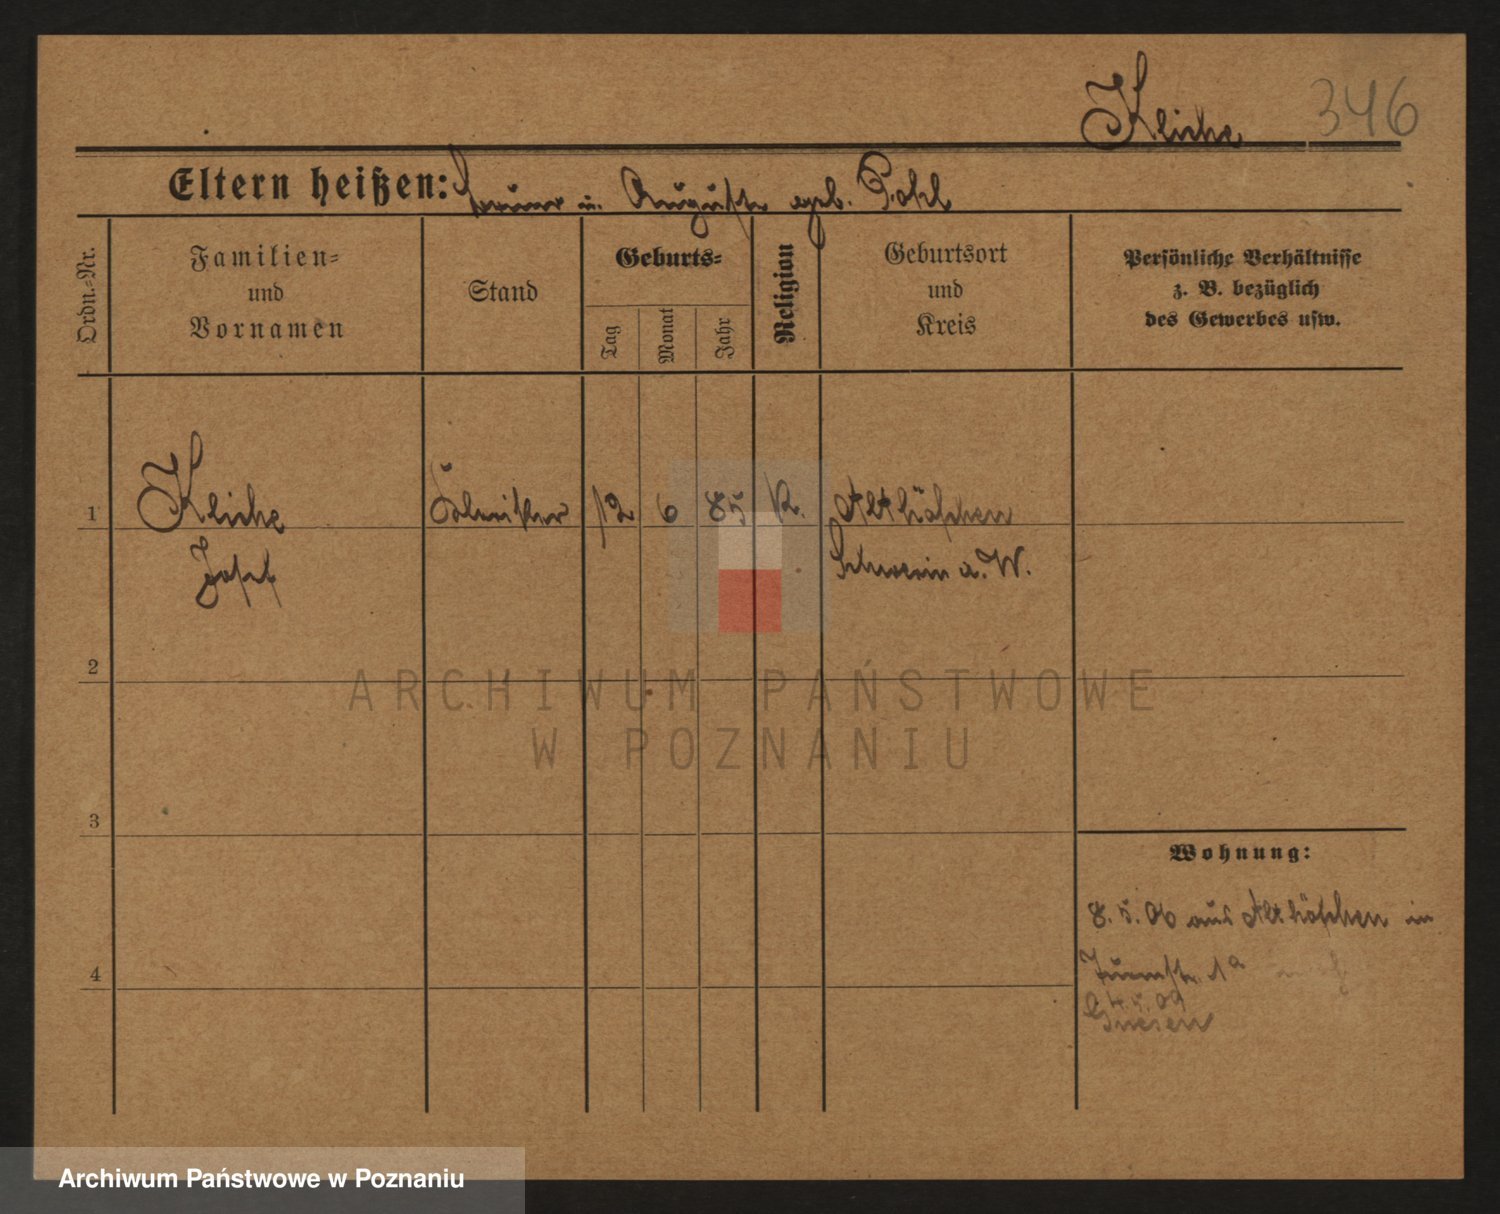 Kliche 346
Eltern heißen: u. Auguste geb. Pohl
Ordn.-Nr.
Familien-
und
Vornamen
Stand
Geburts-
Tag
Monat
Jahr
Religion
Geburtsort
und
Kreis
Persönliche Verhältnisse
z. B. bezüglich
des Gewerbes usw.
1 Kliche 12 6 85 K. Althöfchen
Josef Schwerin a. W.
2
ARCHIWUM PAŃSTWOWE
W POZNANIU
3
Wohnung:
8.5.06 aus Althöfchen in
4 Turmstr. 1a
4.5.09
Gnesen
Archiwum Państwowe w Poznaniu